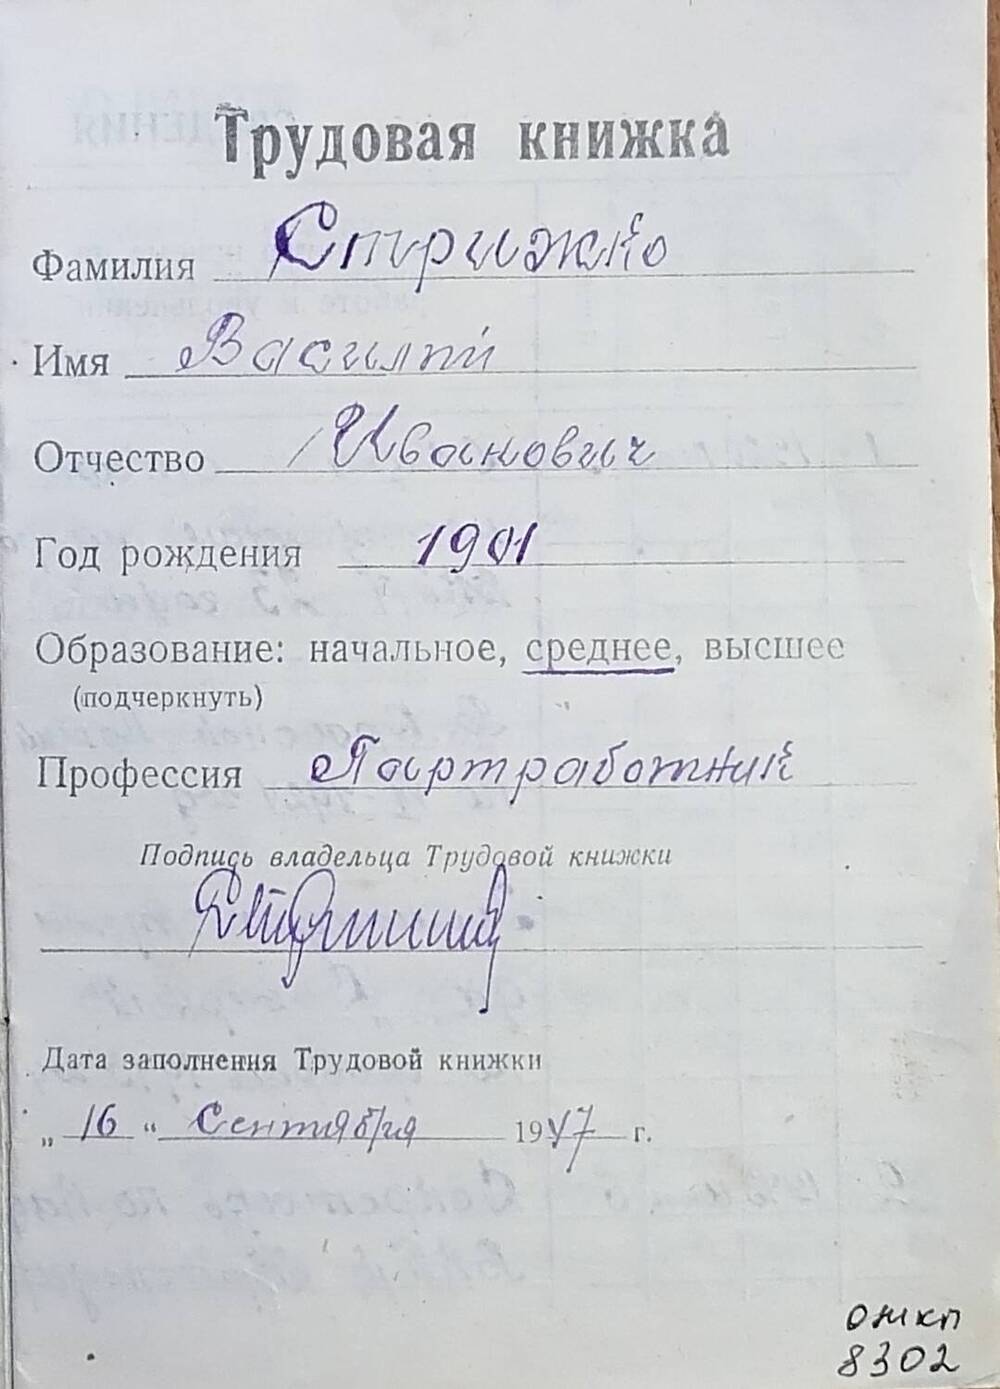 Трудовая книжка
Фамилия Стрижко
Имя Василий
Отчество Иванович
Год рождения 1901
Образование: начальное, среднее, высшее
(подчеркнуть)
Профессия Партработник
Подпись владельца Трудовой книжки
Дата заполнения Трудовой книжки
„ 16 “ Сентября 1947 г.
ОМКП
8302